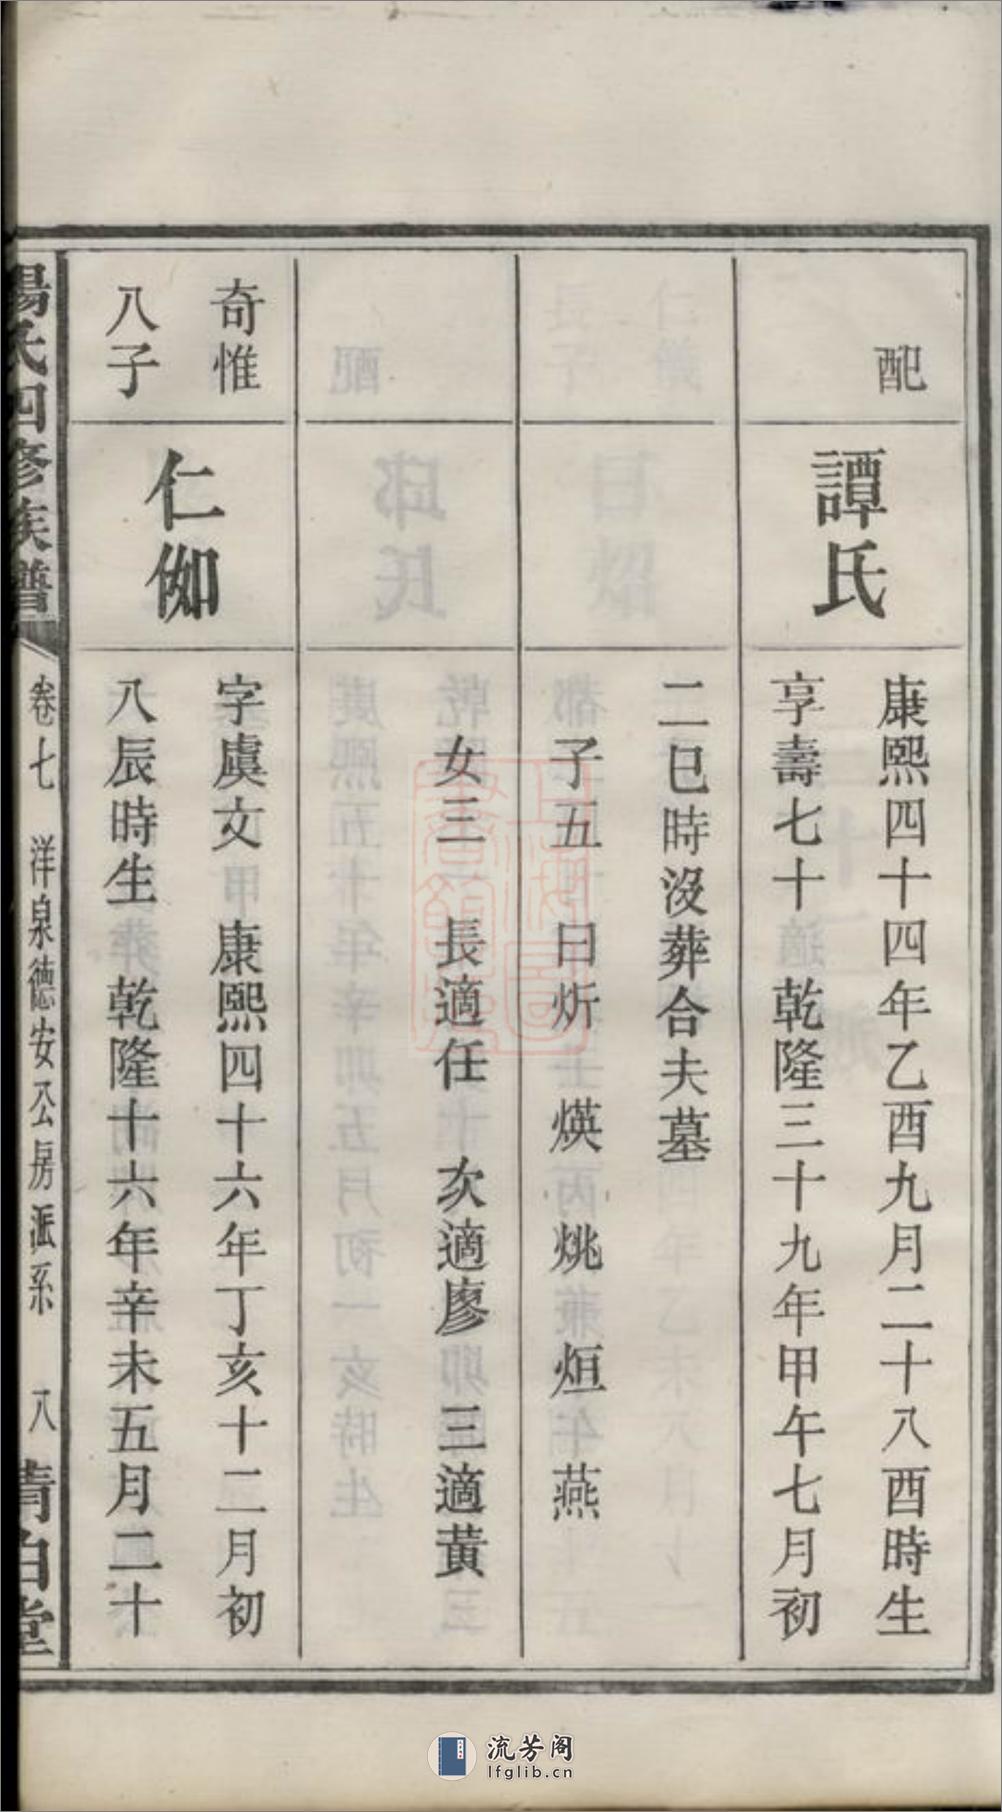 配
譚氏
康熙四十四年乙酉九月二十八酉時生
享壽七十 乾隆三十九年甲午七月初
二巳時没葬合夫墓
子五 曰炘 煐 烑 烜 燕
女三 長適任 次適廖 三適黃
奇惟
八子
仁㑚
字虞文 康熙四十六年丁亥十二月初
八辰時生 乾隆十六年辛未五月二十
楊氏四修族譜
卷七 洋泉德安公房派系 八
清白堂
流芳阁
lfglib.cn